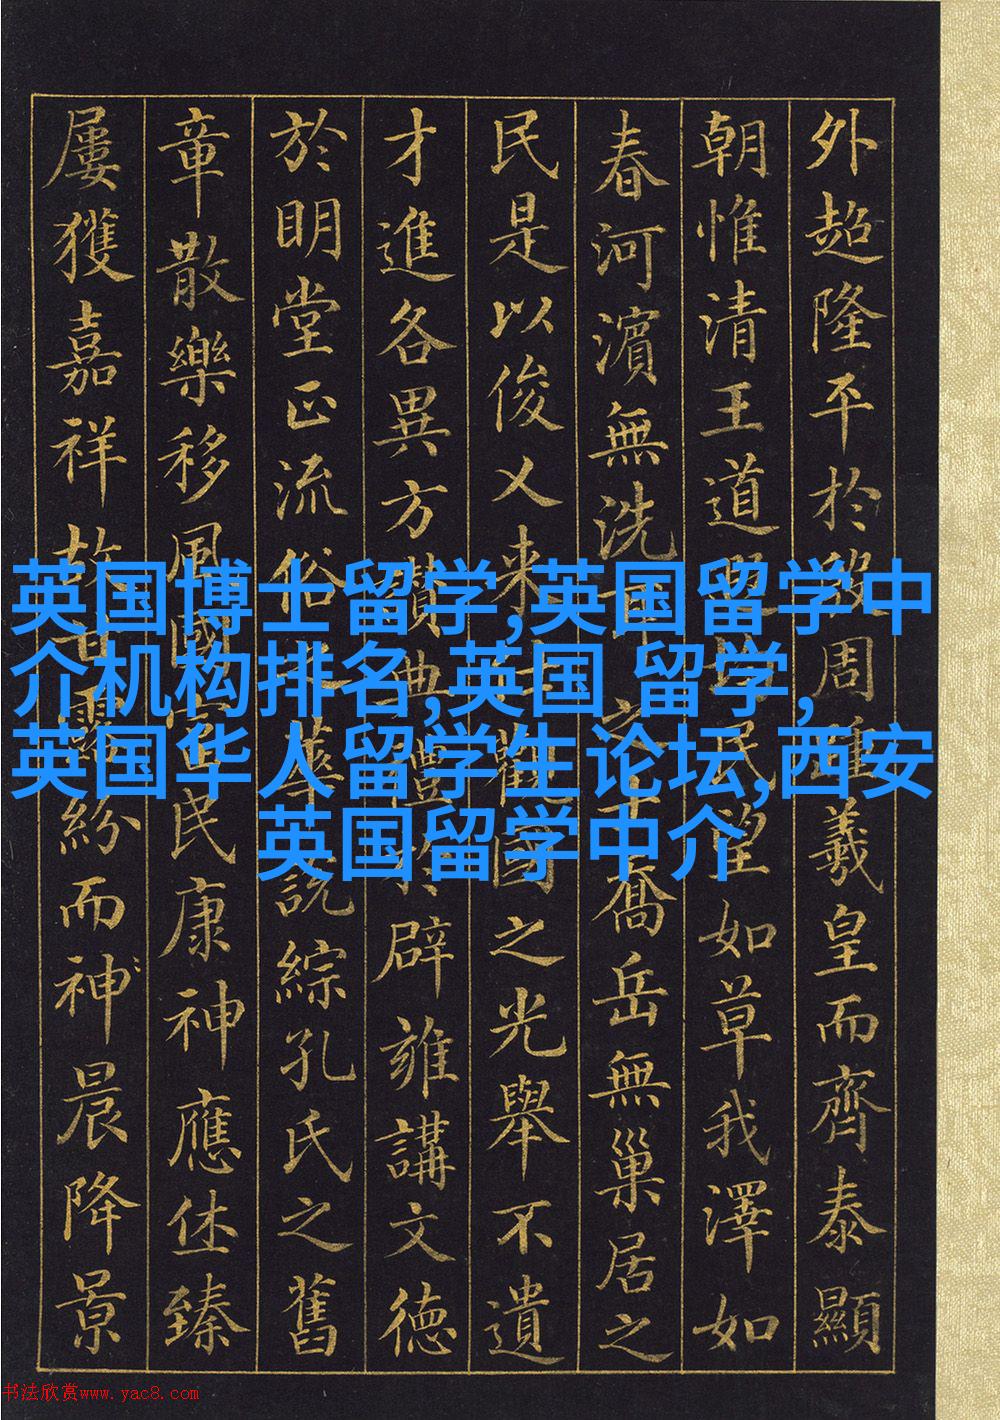 外超隆平於殷周踵羲皇而齊泰顯
朝惟清王道遐均民望如草我澤如
春河濱無洗耳之士喬岳無巢居之
民是以俊乂来仕觀國之光舉不遺
才進各異方讚典禮於辟雍講文德
於明堂正流俗之華説綜孔氏之舊
章散樂移風國富民康神應休臻
屢獲嘉祥故甘靈紛而神晨降景
英国博士留学,英国留学中
介机构排名,英国 留学,
英国华人留学生论坛,西安
英国留学中介
书法欣赏www.yac8.com